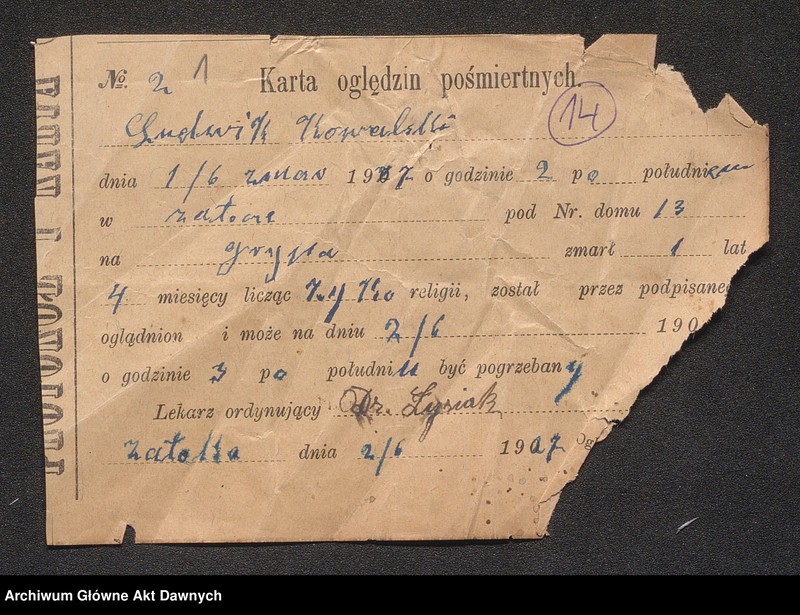 No. 2 1 Karta oględzin pośmiertnych.
14
Ludwik Kowalski
dnia 1/6 1907 o godzinie 2 po południu
w pod Nr. domu 13
na grypa zmarł 1 lat
4 miesięcy licząc religii, został przez podpisaneg
oglądnion i może na dniu 2/6 190
o godzinie 3 po południu być pogrzebany
Lekarz ordynujący Dr. Łysiak
dnia 2/6 1907
Archiwum Główne Akt Dawnych